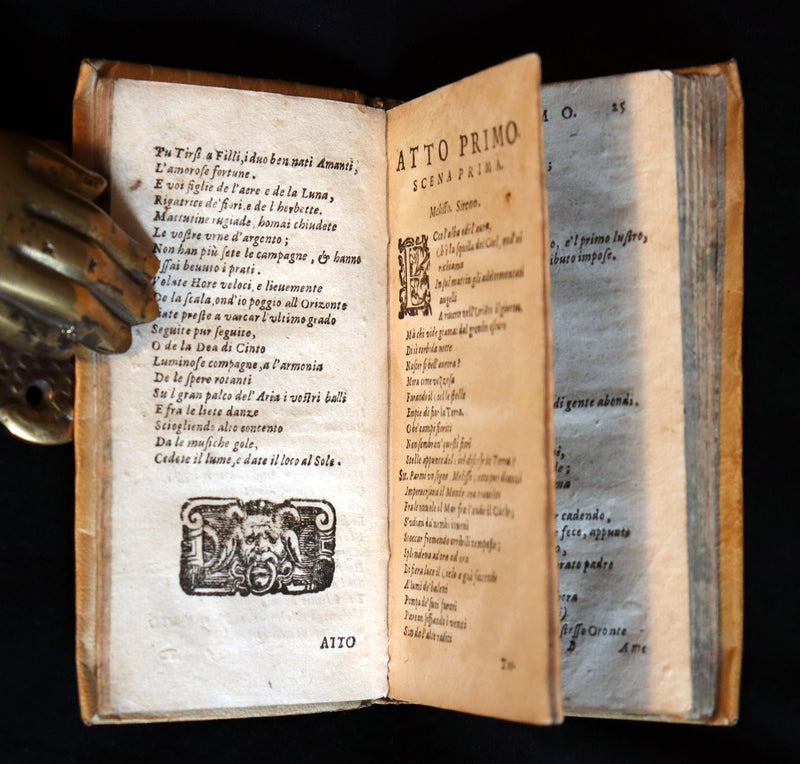 Tu Tirsi a Filli, i duo ben nati Amanti;
L'amorose fortune.
E voi figlie de l'aere e de la Luna,
Rigatrice de' fiori, e de l herbette.
Mattutine rugiade, homai chiudete
Le vostre vrne d'argento;
Non han più sete le campagne, & hanno
Assai beuuto i prati.
Volate Hore veloci, e lieuemente
De la scala, ond'io poggio all Orizonte
Siate preste a varcar l'vltimo grado
Seguite pur seguite,
O de la Dea di Cinto
Luminose compagne, a l'armonia
De le spere rotanti
Su l gran palco del' Aria i vostri balli
E fra le liete danze
Sciogliendo alto concento
Da le musiche gole,
Cedete il lume, e date il loco al Sole.
ATTO
ATTO PRIMO.
SCENA PRIMA.
Melisso. Sireno.
Ecco l'alba ed
Ch'è la sposa del Ciel,
angelli
A
Mà chi vide giamai dal grembo oscuro
Di sì torbida notte
Nascer sì bell'aurora?
Mira come vezzosa
Furando i le stelle
Empie di fior la Terra.
O be' campi fioriti
Non sembran' questi fiori
Stelle appunto del in Terra?
Sir. Melisso,
il Mondo
il Mar fra l'
Scoccar fremendo orribili tempeste;
Splendeua ad ora ad ora
Di fiera luce il Cielo e già facendo
A lumi de' baleni
Pompa de' suoi furori
i venti
Sin da l'alte radici
M O. 25
o, e'l primo lustro,
ibuto impose.
di gente abondi.
cadendo,
fece, appunto
rato padre
stesso Oronte
B Ame